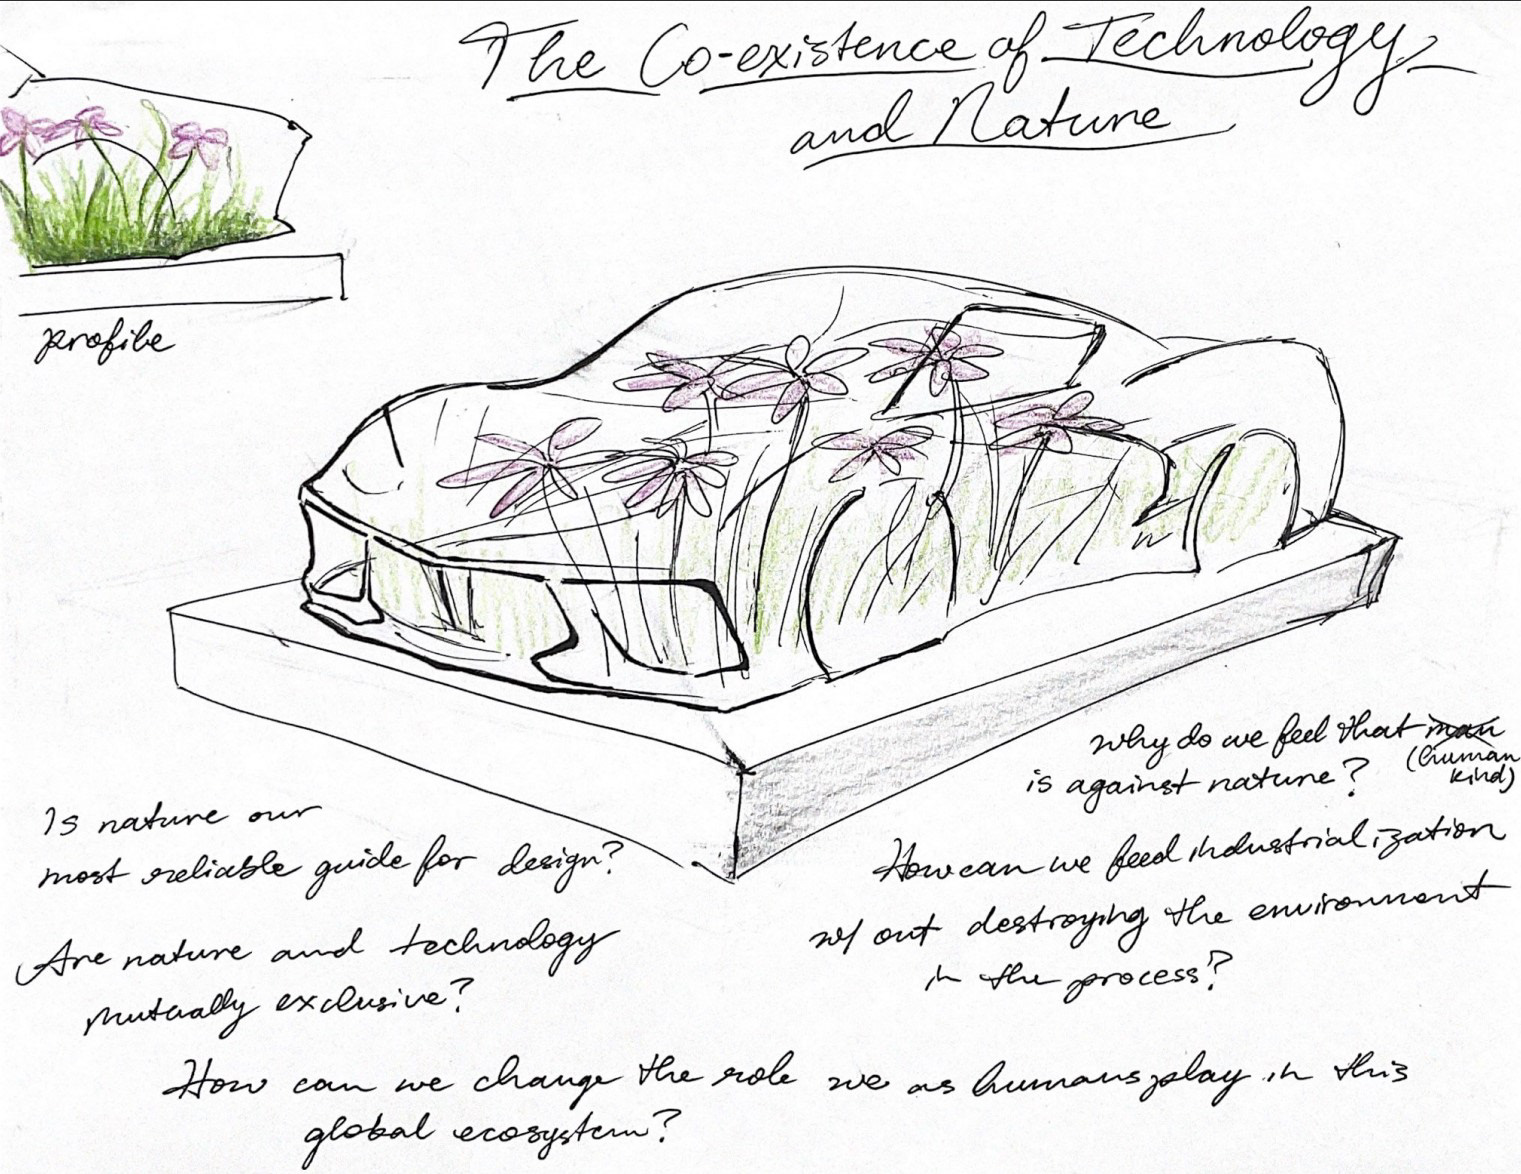 The Co-existence of Technology
and Nature
profile
why do we feel that man
(human
kind)
is against nature?
Is nature our
most reliable guide for design?
How can we feed industrialization
w/ out destroying the environment
in the process?
Are nature and technology
mutually exclusive?
How can we change the role we as humans play in this
global ecosystem?